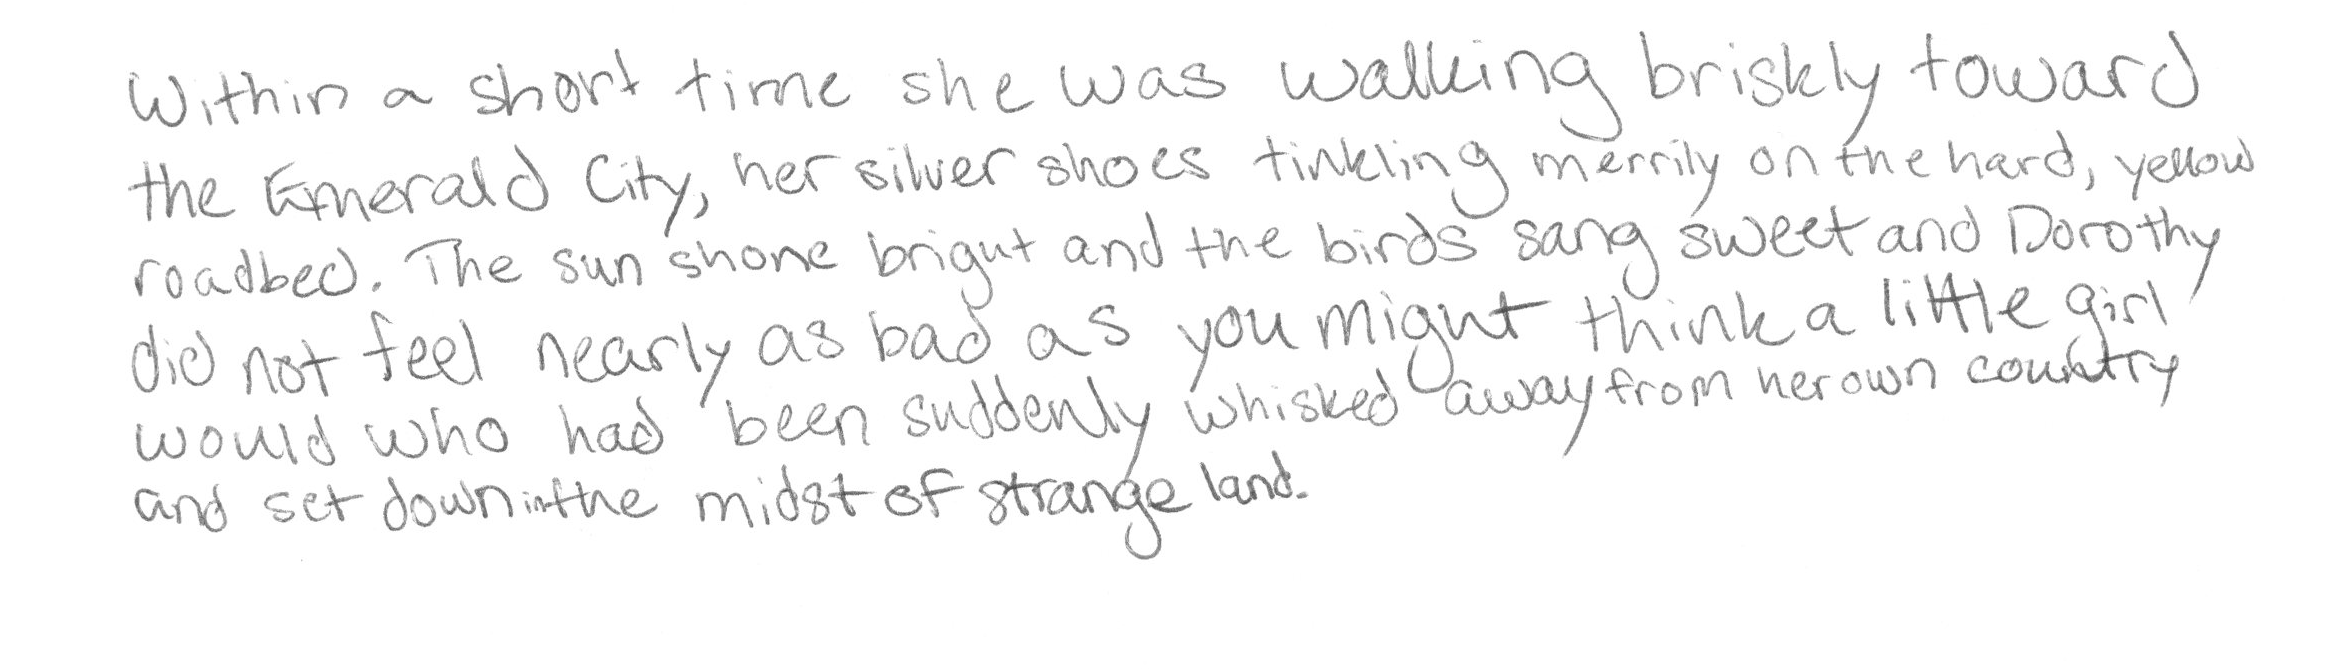 Within a short time she was walking briskly toward
the Emerald City, her silver shoes tinkling merrily on the hard, yellow
roadbed. The sun shone bright and the birds sang sweet and Dorothy
did not feel nearly as bad as you might think a little girl
would who had been suddenly whisked away from her own country
and set down in the midst of strange land.